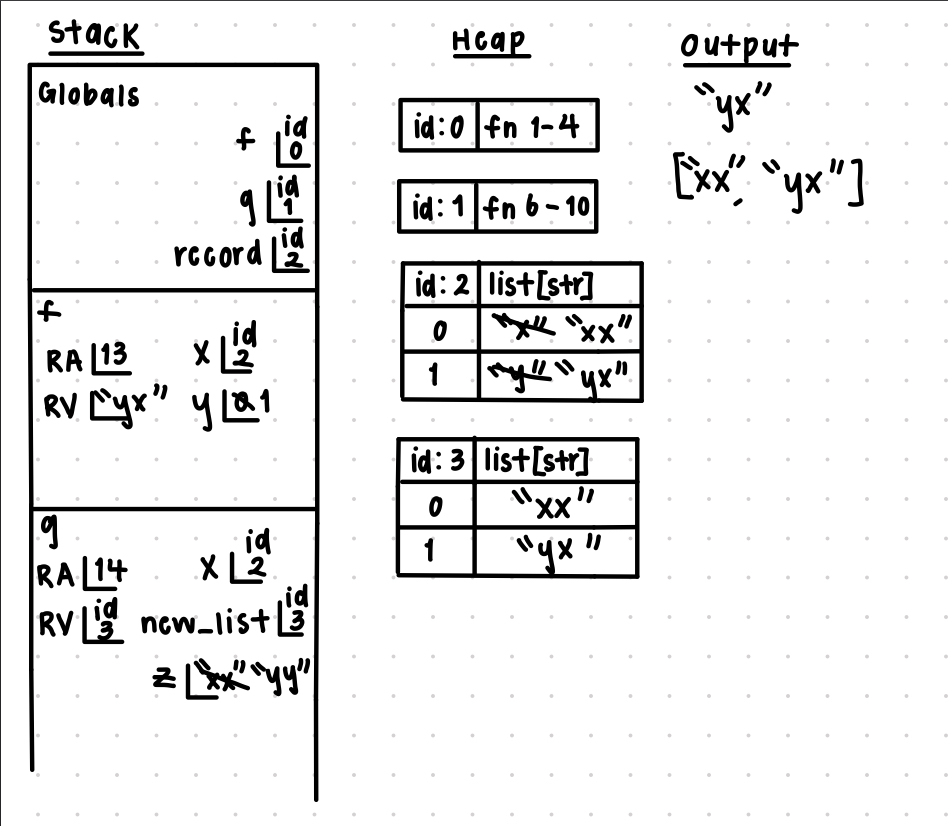 Stack
Globals
f id 0
g id 1
record id 2
f
RA 13 X id 2
RV "yx" y 0 1
g
RA 14 X id 2
RV id 3 new_list id 3
z "xx" "yy"
Heap
id:0 fn 1-4
id:1 fn 6-10
id:2 list[str]
0 "x" "xx"
1 "y" "yx"
id:3 list[str]
0 "xx"
1 "yx"
Output
"yx"
["xx", "yx"]